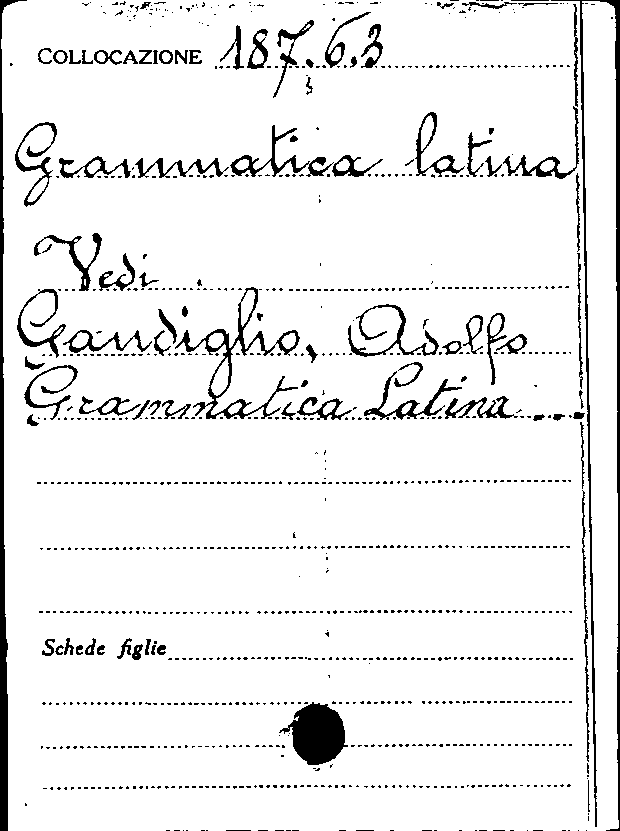 COLLOCAZIONE 187.6.3
Grammatica latina
Vedi .
Gandiglio, Adolfo
Grammatica Latina ...
Schede figlie